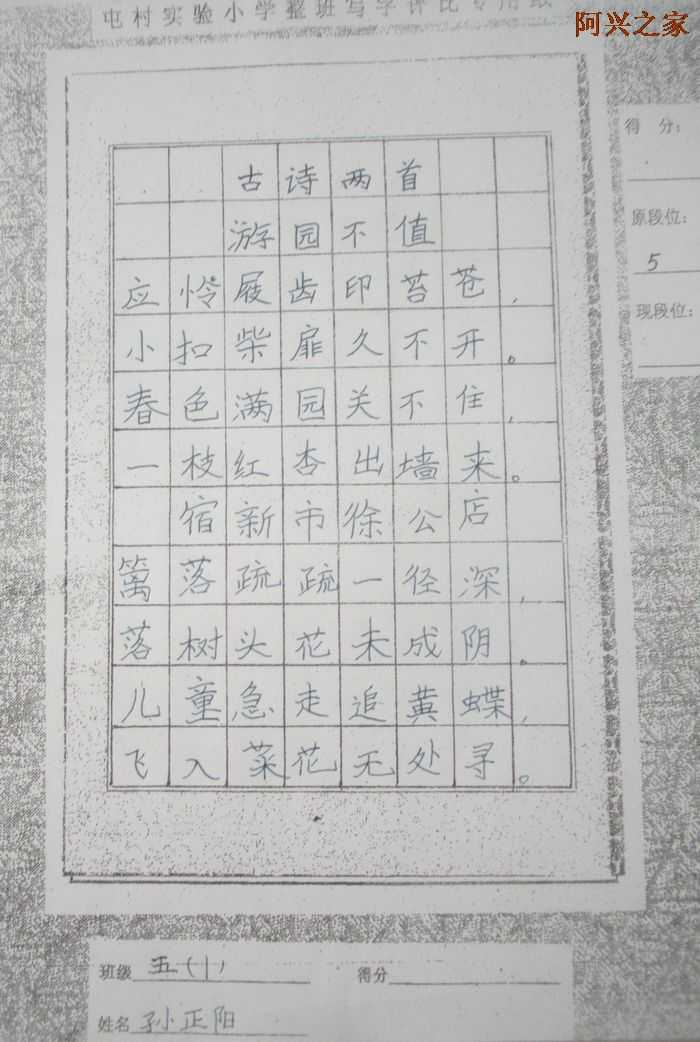 屯村实验小学整班写字评比专用纸
阿兴之家
得 分：
原段位：
5
现段位：
古诗两首
游园不值
应怜屐齿印苔苍，
小扣柴扉久不开。
春色满园关不住，
一枝红杏出墙来。
宿新市徐公店
篱落疏疏一径深，
落树头花未成阴。
儿童急走追黄蝶，
飞入菜花无处寻。
班级 五（十） 得分
姓名 孙正阳